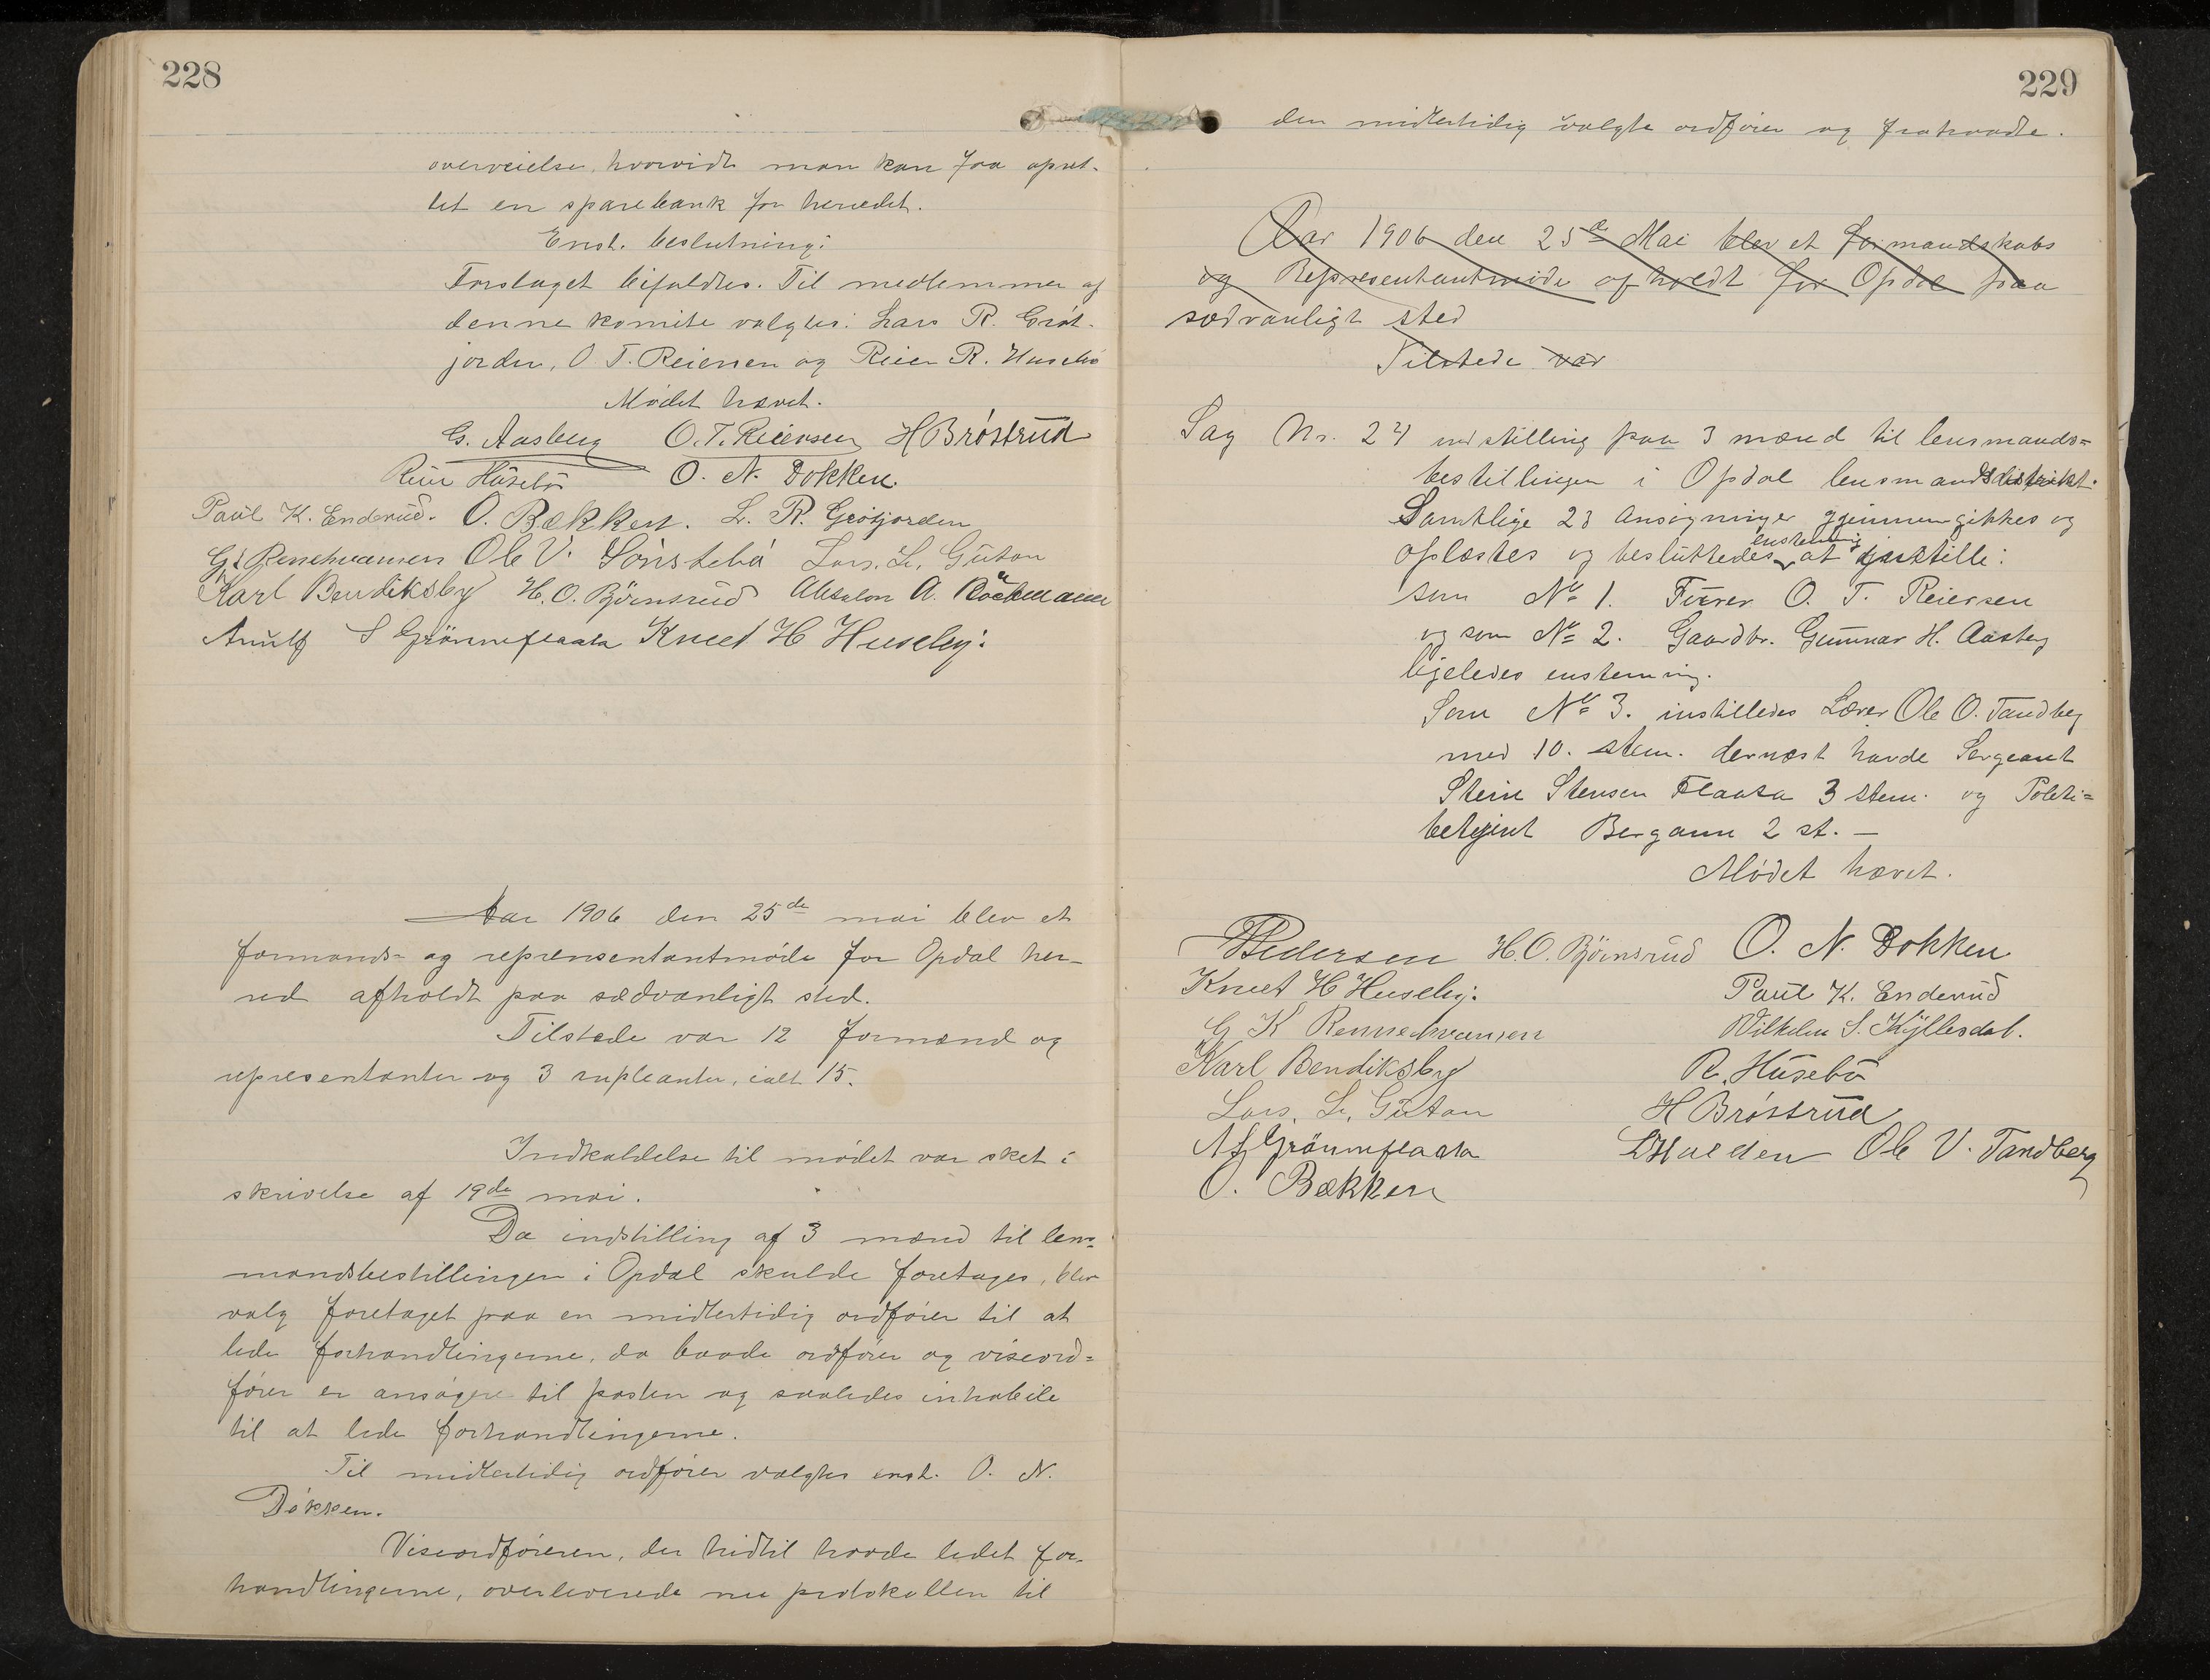 228
overveielse, hvorvidt man kan faa opret-
tet en sparebank for herredet.
Enst. beslutning:
Forslaget bifaldtes. Til medlemmer af
denne komite valgtes: Lars R. Gröt-
jorden, O T. Reiersen og Reier R. Husebö
Mödet hævet.
G. Aasberg O. T. Reiersen H Bröstrud
Reier Husebö O. N. Dokken.
Paul K. Enderud. O. Bækken. L. R. Grötjorden
G. K Rennehvammen Ole V. Sönstebö Lars. L. Guton
Karl Bendiksby H. O. Björnsrud Absalon A.
S Grönneflaata Knut H Huseby:
Aar 1906 den 25de mai blev et
formands- og reprensentantmöde for Opdal her-
red afholdt paa sædvanligt sted.
Tilstede var 12 formænd og
representanter og 3 supleanter, ialt 15.
Indkaldelse til mödet var sket i
skrivelse af 19de mai.
Da indstilling af 3 mænd til lens-
mandsbestillingen i Opdal skulde foretages, blev
valg foretaget paa en midlertidig ordförer til at
lede forhandlingerne, da baade ordförer og viseord=
förer er ansögere til posten og saaledes inhabile
til at lede forhandlingerne.
Til midlertidig ordförer valgtes enst. O. N.
Dokken.
Viseordföreren, der hidtil havde ledet for-
handlingerne, overleverede nu protokollen til
229
den midlertidig valgte ordförer og fratraadte.
Aar 1906 den 25de Mai blev et formandskabs
og Representantmöde afholdt for Opdal paa
sædvanligt sted
Tilstede var
Sag Nr. 24 indstilling paa 3 mænd til lensmands=
bestillingen i Opdal lensmandsdistrikt.
Samtlige 23 Ansögninger gjennemgikkes og
enstemmig
oplæstes og besluttedes at instille:
som No 1. Furer O. T. Reiersen
og som No 2. Gaardbr. Gunnar H. Aasberg
ligeledes enstemmig.
Som No 3. instilledes Lærer Ole O. Tandberg
med 10. stem. dernæst havde Sergeant
Stein Stensen Flaata 3 stem. og Politi=
betjent Bergann 2 st. —
Mödet hævet.
Pedersen H. O. Björnsrud O. N. Dokken
Knut H Huseby: Paul K. Enderud
G K Rennehvammen Wilhelm S. Kyllesdal.
Karl Bendiksby R. Husebö
Lars. L. Guton H Bröstrud
A S Grönneflaata L Halden Ole V. Tandberg
O. Bækken